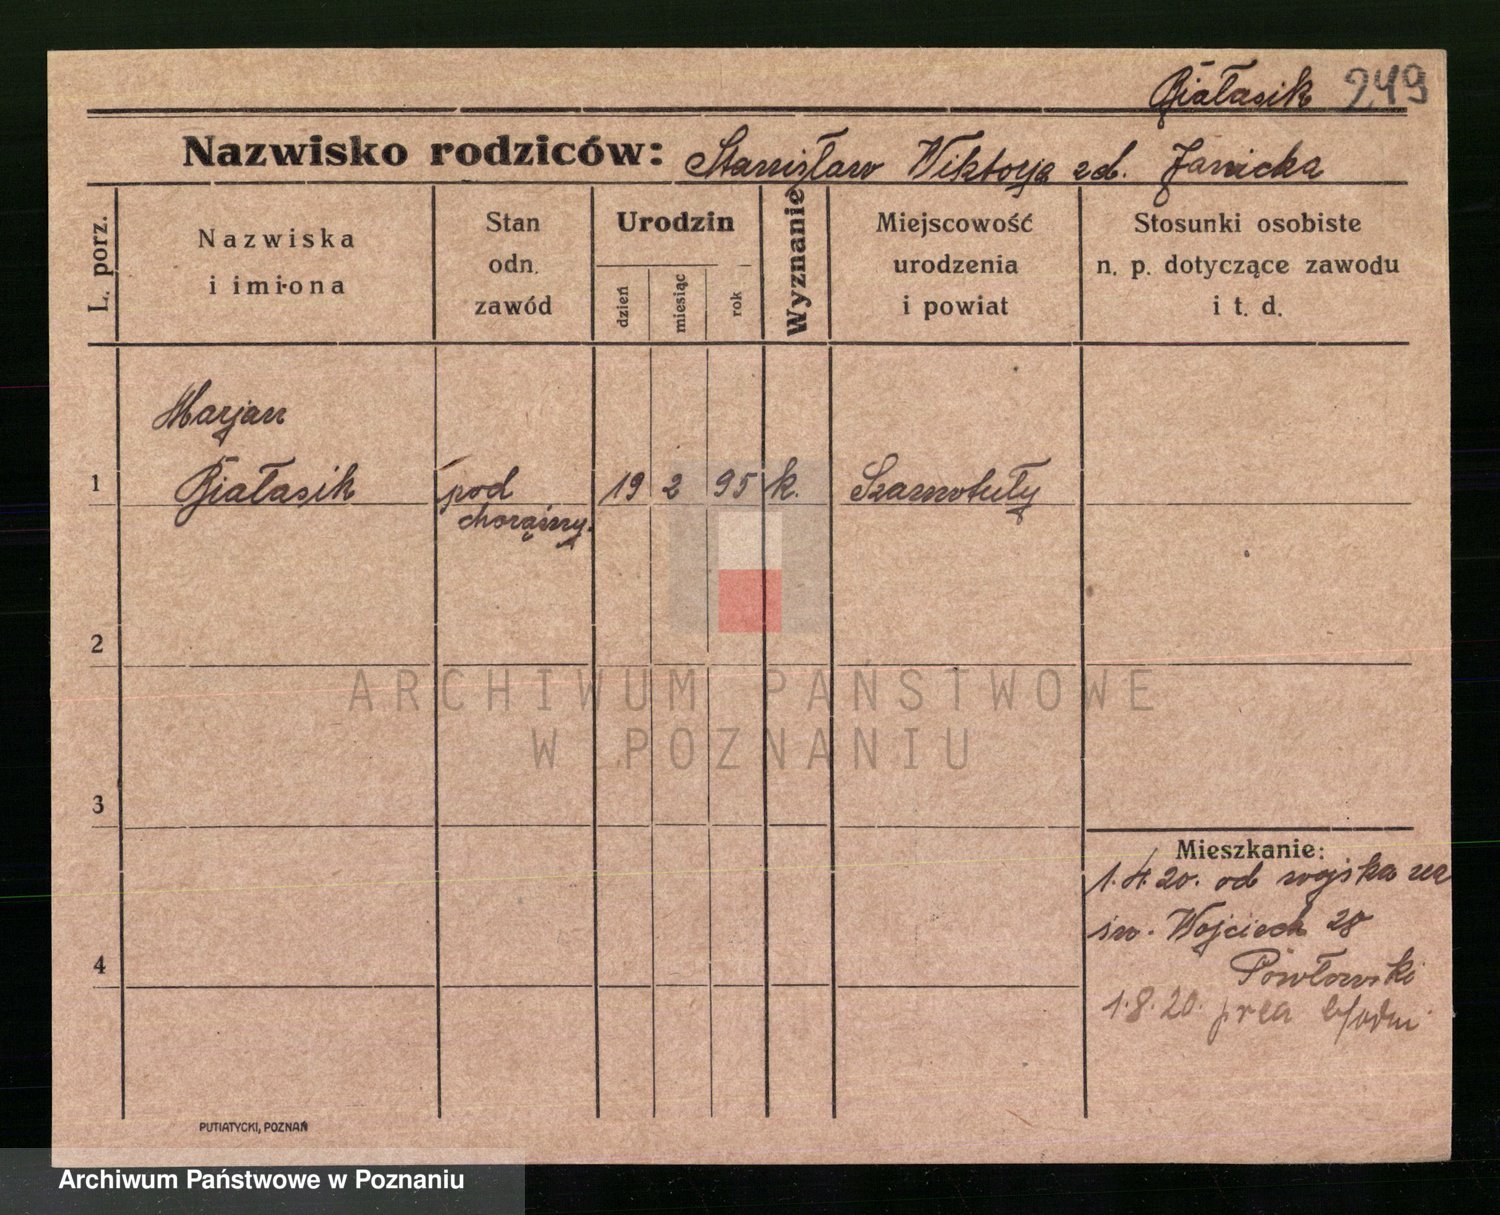 Białasik 249
Nazwisko rodziców: Stanisław Wiktorja zd. Janicka
L. porz.
Nazwiska
i imiona
Stan
odn.
zawód
Urodzin
dzień
miesiąc
rok
Wyznanie
Miejscowość
urodzenia
i powiat
Stosunki osobiste
n. p. dotyczące zawodu
i t. d.
Marjan
1 Białasik pod 19 2 95 k. Szamotuły
chorąży.
2
ARCHIWUM PAŃSTWOWE
W POZNANIU
3
Mieszkanie:
1.4.20. od wojska na
św. Wojciech 28
4
1.8.20.
PUTIATYCKI, POZNAŃ
Archiwum Państwowe w Poznaniu